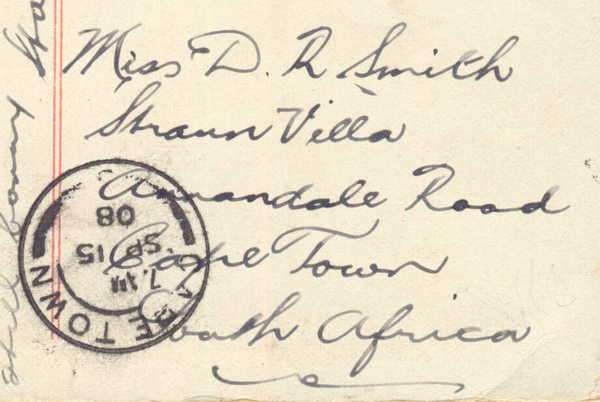 Miss D. R Smith
Straun Villa
Annandale Road
Cape Town
South Africa
CAPE TOWN
7. PM
SP 15
08
still